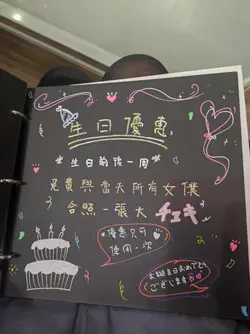 生日優惠
*生日前後一周*
免費與當天所有女僕
合照一張大チェキ
*優惠只可
使用一次
お誕生日おめでとう
ございます